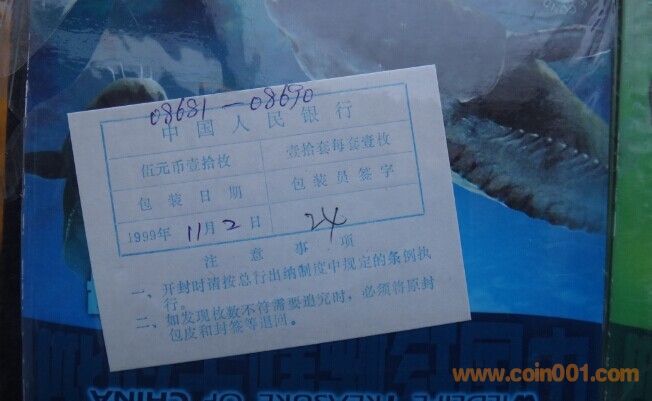 08681—08690
中国人民银行
伍元币壹拾枚
壹拾套每套壹枚
包装日期
包装员签字
1999年 11月 2日
24
注意事项
一、开封时请按总行出纳制度中规定的条例执行。
二、如发现枚数不符需要追究时，必须将原封包皮和封签等退回。
www.coin001.com
WILDLIFE TREASURE OF CHINA